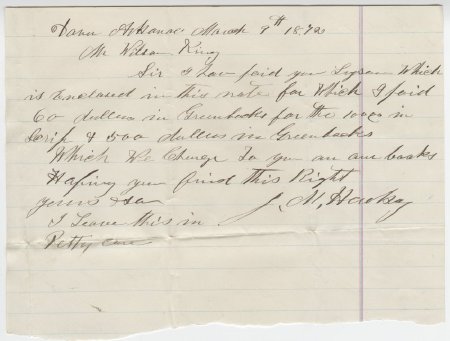 Arkansas March 9th 1872
Mr Wilson King
Sir I hav paid you Which
is Enclosed in this note for Which I paid
60 dollers in Greenbacks for the in
Scrip & 500 dollers in Greenbacks
Which We Charge to you on our books
Hoping you find this Right
yours &
J. M. 
I Leave this in
Petty care